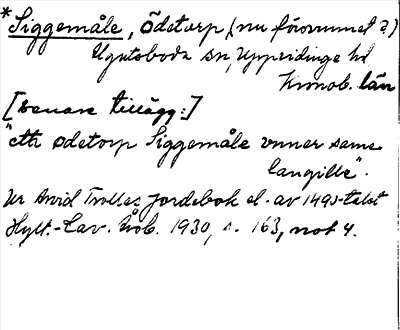 *Siggemåle, Ödetorp (nu försvunnet?)
Ugutsboda sn, Uppvidinge hd
Kronob. län
[senare tillägg:]
"ett ødetorp Siggemåle vnner same
langille".
Ur Arvid Trolles Jordebok el. av 1490-talet
Hylt.-Cav. Årsb. 1930, s. 163, not 4.